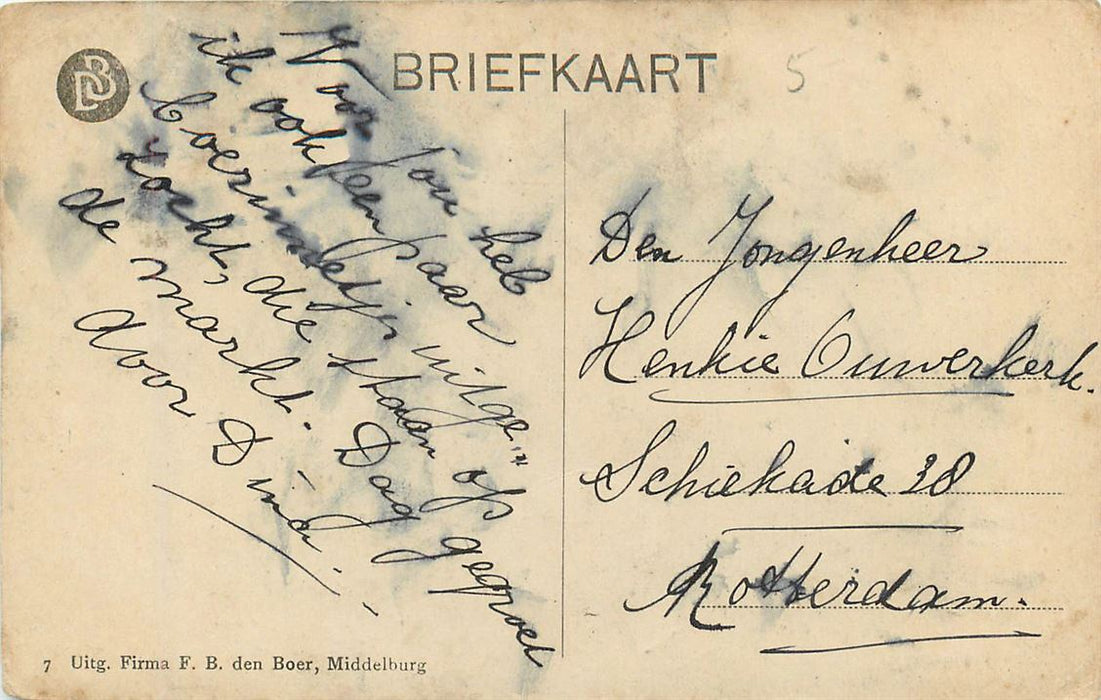 DB
BRIEFKAART
5
Voor jou heb
ik ook een paar
boerinnetjes uitge"
zocht, die staan op
de markt. Dag gegroet
door Dina.
Den Jongenheer
Henkie Ouwerkerk.
Schiekade 38
Rotterdam.
7 Uitg. Firma F. B. den Boer, Middelburg